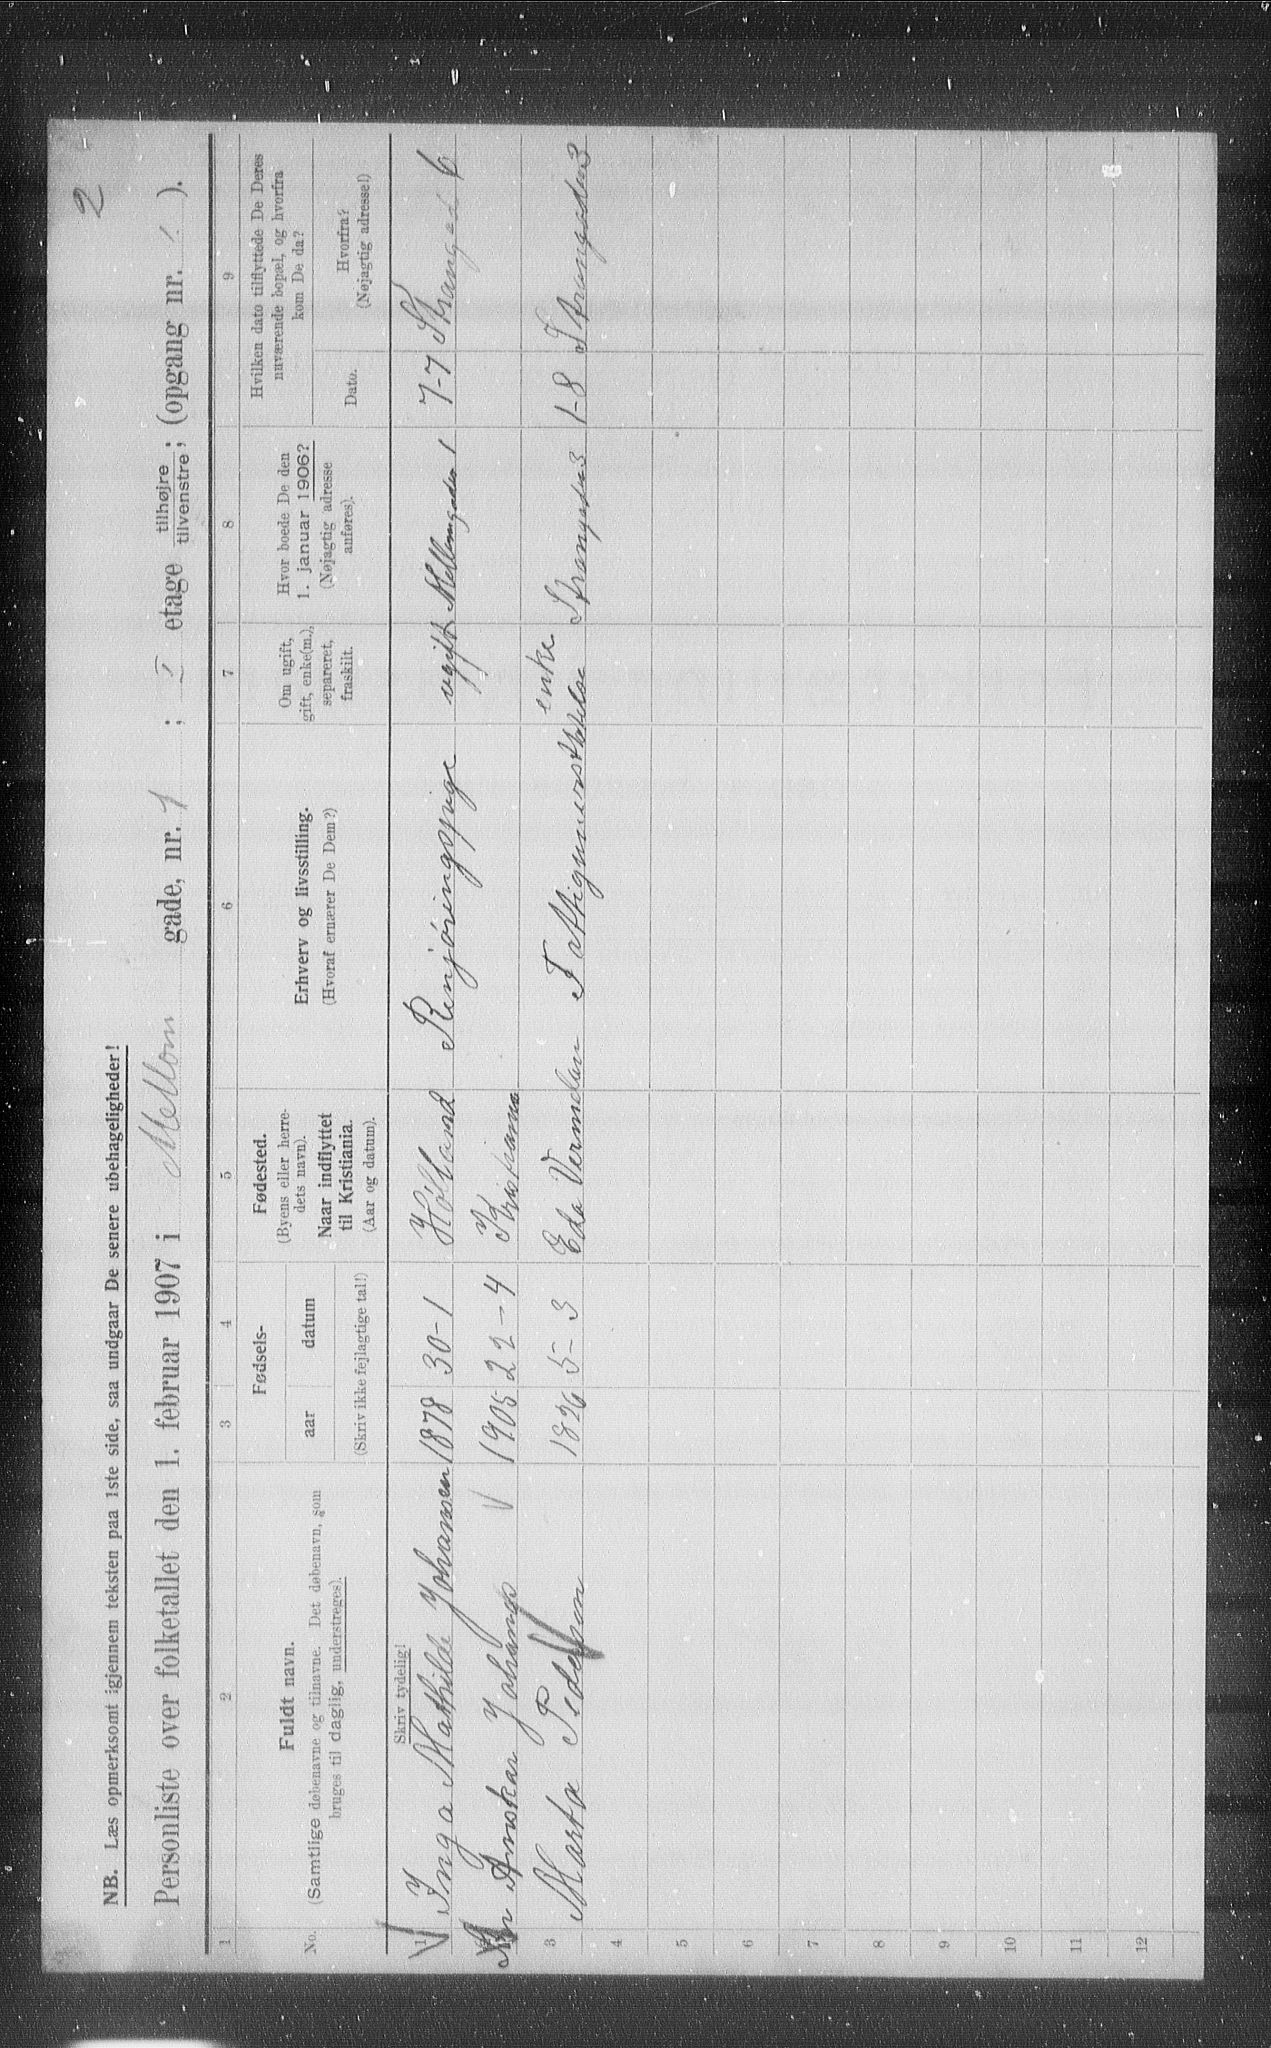 2
NB. Læs opmerksomt igjennem teksten paa 1ste side, saa undgaar De senere ubehageligheder!
Personliste over folketallet den 1. februar 1907 i Mellom gade, nr. 1 ; I etage tilhøjre tilvenstre; (opgang nr. 1 ).
1 2 3 4 5 6 7 8 9
No.
Fuldt navn.
(Samtlige døbenavne og tilnavne. Det døbenavn, som
bruges til daglig, understreges).
Fødsels-
aar datum
(Skriv ikke fejlagtige tal!)
Fødested.
(Byens eller herre-
dets navn).
Naar indflyttet
til Kristiania.
(Aar og datum).
Erhverv og livsstilling.
(Hvoraf ernærer De Dem?)
Om ugift,
gift, enke(m.),
separeret,
fraskilt.
Hvor boede De den
1. januar 1906?
(Nøjagtig adresse
anføres).
Hvilken dato tilflyttede De Deres
nuværende bopæl, og hvorfra
kom De da?
Dato.
Hvorfra?
(Nøjagtig adresse!)
Skriv tydelig!
1 Inga Mathilde Johansen 1878 30-1 Høland Renjøringspige ugift Mellemgaden 1 7-7 Strangad 6
Anskar Johans 1905 22-4 Kristiania
3 Marta Pederson 1826 5-3 Eda Vermelan Fattigunerst enke Strangaden 3 1-8 Strangaden 3
4
5
6
7
8
9
10
11
12